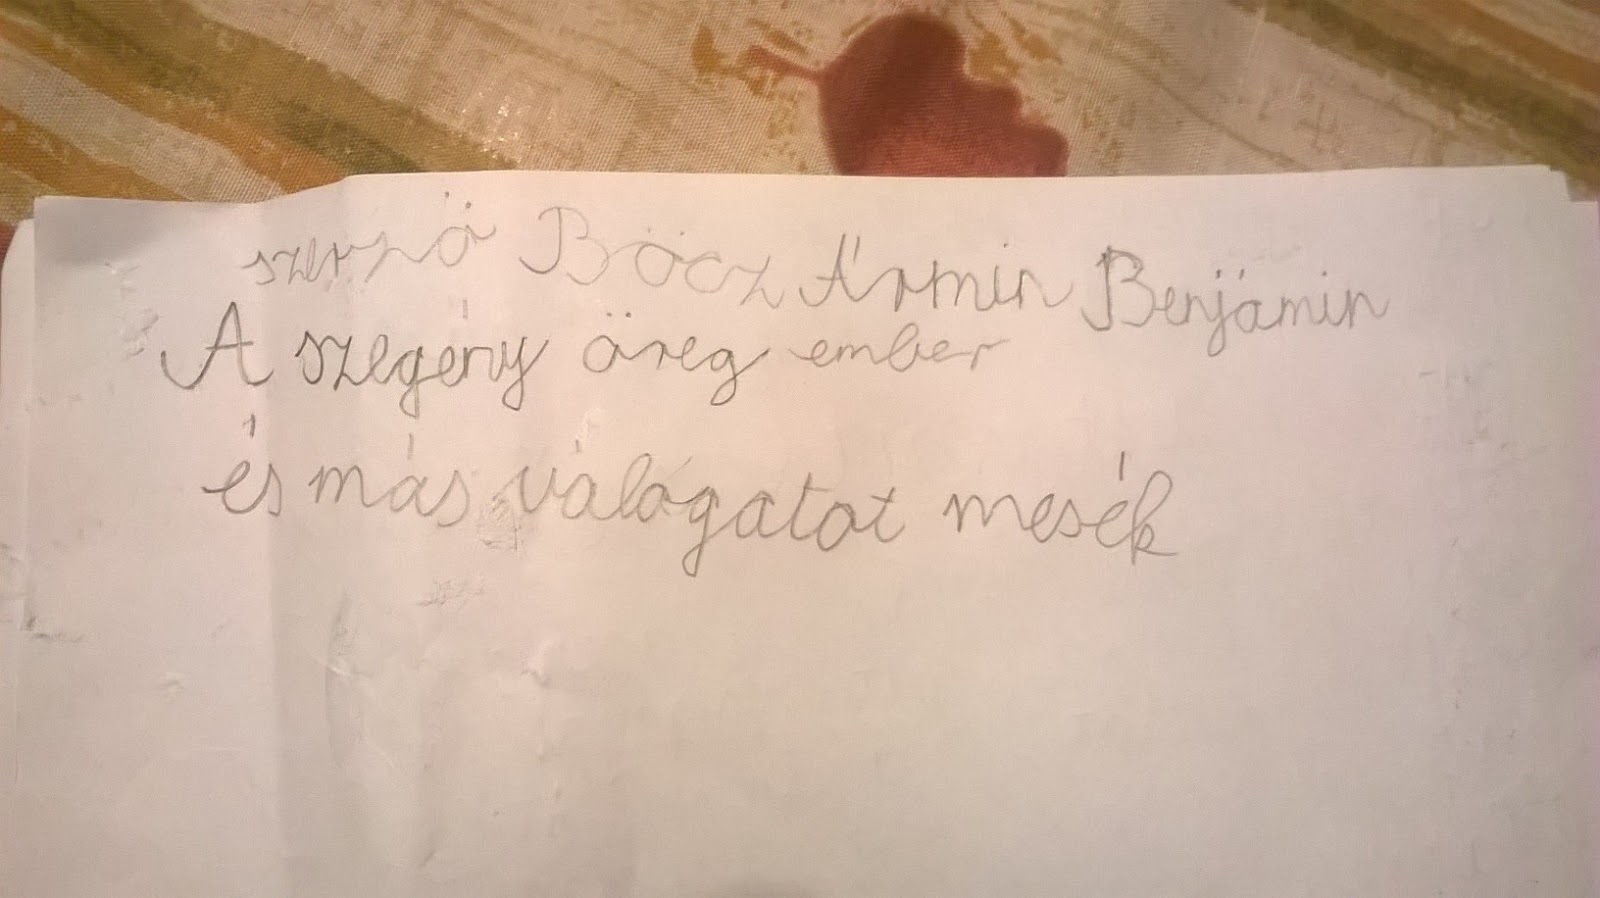 szerző Böcz Ármin Benjámin
A szegény öreg ember
és más válógatot mesék